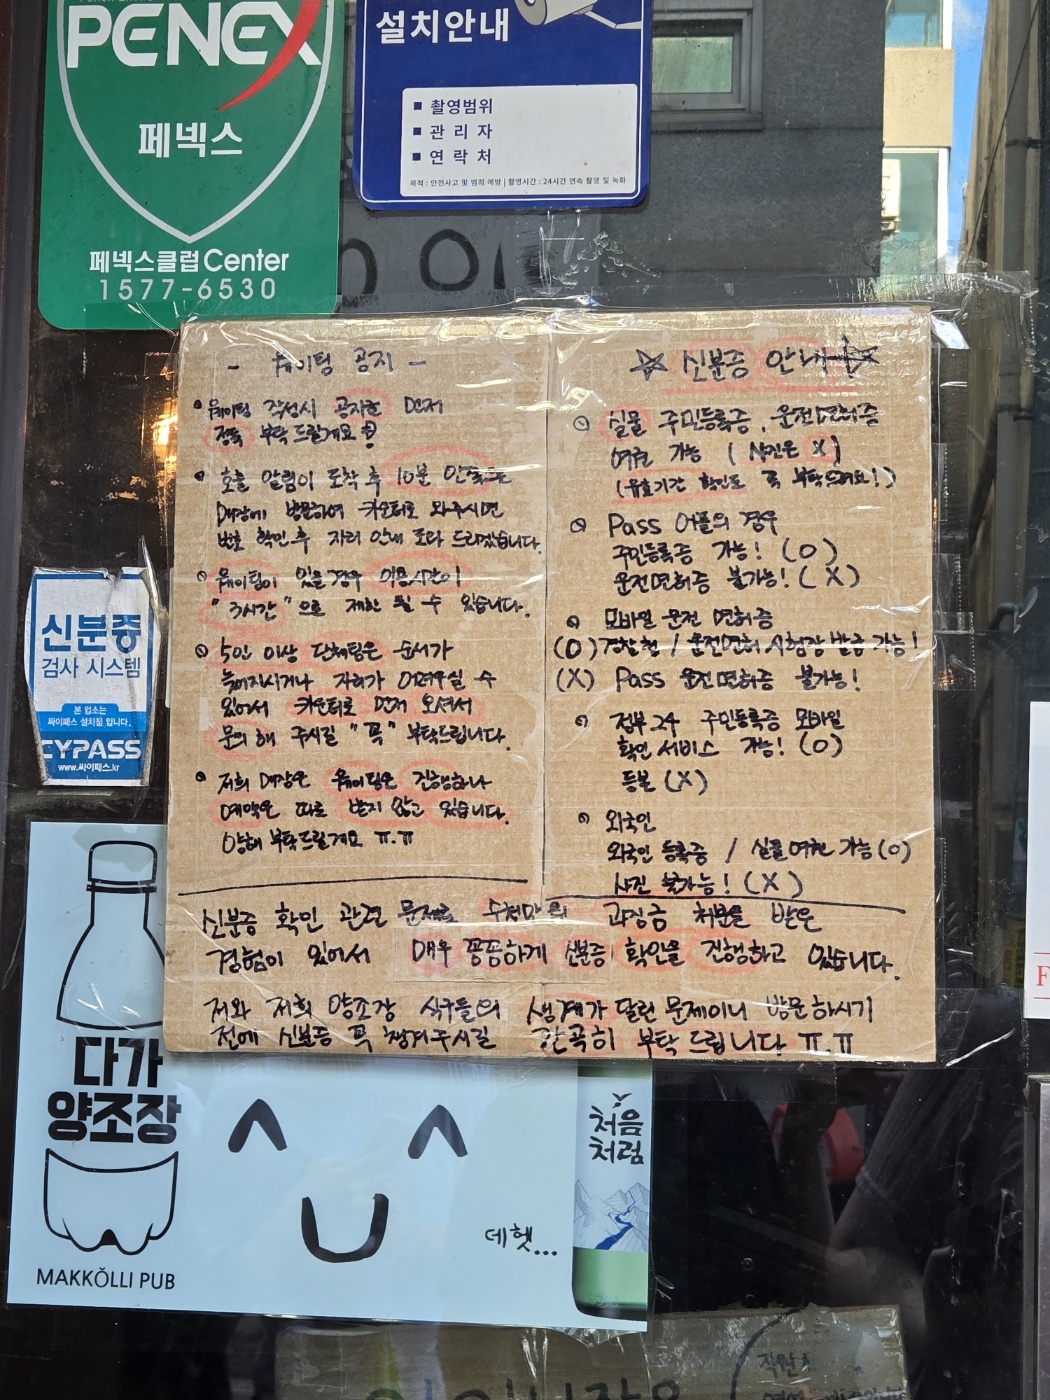 PENEX
페넥스
페넥스클럽 Center
1577-6530
설치안내
■ 촬영범위
■ 관 리 자
■ 연 락 처
목적 : 안전사고 및 범죄 예방 | 촬영시간 : 24시간 연속 촬영 및 녹화
- 웨이팅 공지 -
웨이팅 작성시 공지한 먼저
정독 부탁 드릴게요
호출 알림이 도착 후 10분 안으로
매장에 방문하여 카운터로 와주시면
번호 확인 후 자리 안내 도와 드리겠습니다.
웨이팅이 있을 경우 이용시간이
"3시간"으로 제한 될 수 있습니다.
5인 이상 단체팀은 순서가
늦어지시거나 자리가 어려우실 수
있어서 카운터로 먼저 오셔서
문의 해 주시길 "꼭" 부탁드립니다.
저희 매장은 웨이팅은 진행하나
예약은 따로 받지 않고 있습니다.
양해 부탁드릴게요 ㅠ.ㅠ
☆ 신분증 안내 ☆
실물 주민등록증, 운전면허증
여권 가능 ( 사진은 X )
(유효기간 확인도 꼭 부탁드려요!)
Pass 어플의 경우
주민등록증 가능! (O)
운전면허증 불가능! (X)
모바일 운전 면허증
(O) 경찰청 / 운전면허 시험장 발급 가능!
(X) Pass 운전면허증 불가능!
정부24 주민등록증 모바일
확인 서비스 가능! (O)
등본 (X)
외국인
외국인 등록증 / 실물여권 가능 (O)
사진 불가능! (X)
신분증 확인 관련 문제로 수천만원의 과징금 처분을 받은
경험이 있어서 매우 꼼꼼하게 신분증 확인을 진행하고 있습니다.
저와 저희 양조장 식구들의 생계가 달린 문제이니 방문하시기
전에 신분증 꼭 챙겨주시길 간곡히 부탁 드립니다 ㅠ.ㅠ
신분증
검사 시스템
본 업소는
싸이패스 설치점 입니다.
CYPASS
www.싸이패스.kr
다가
양조장
MAKKŎLLI PUB
데헷...
처음
처럼